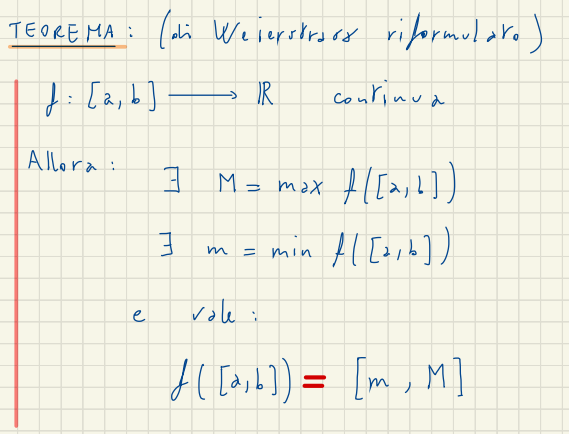 TEOREMA: (di Weierstrass riformulato)
f: [a,b] ⟶ ℝ continua
Allora:
∃ M = max f([a,b])
∃ m = min f([a,b])
e vale:
f([a,b]) = [m, M]